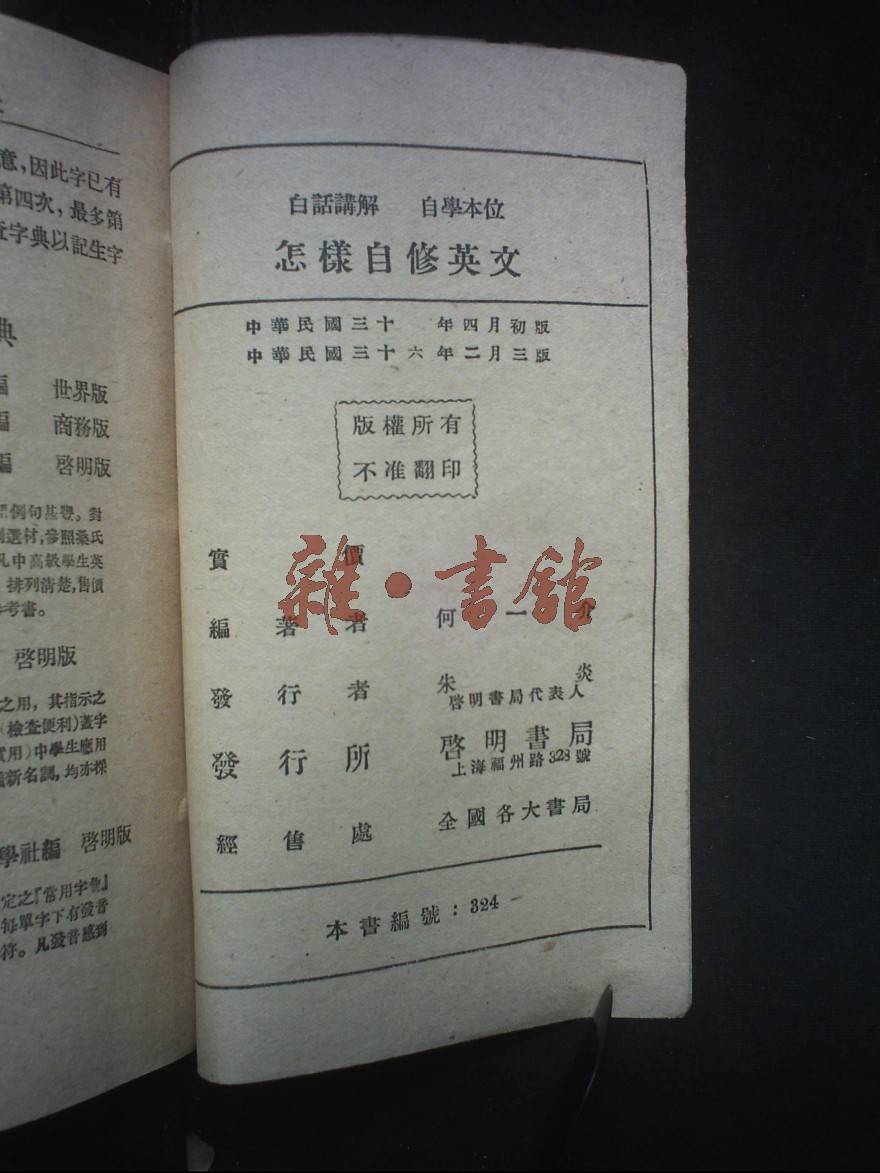 意，因此字已有
第四次，最多第
查字典以記生字
典
編 世界版
編 商務版
編 啓明版
例句甚豐。對
選材，參照桑氏
凡中高級學生英
排列清楚，售價
考書。
啓明版
之用，其指示之
（檢查便利）蓋字
實用）中學生應用
新名詞，均亦採
學社編 啓明版
定之『常用字彙』
每單字下有發音
符。凡發音感到
白話講解 自學本位
怎樣自修英文
中華民國三十 年四月初版
中華民國三十六年二月三版
版權所有
不准翻印
實 價
雜·書館
編著者 何一介
發行者 朱炎
啓明書局代表人
發行所 啓明書局
上海福州路328號
經售處 全國各大書局
本書編號：324